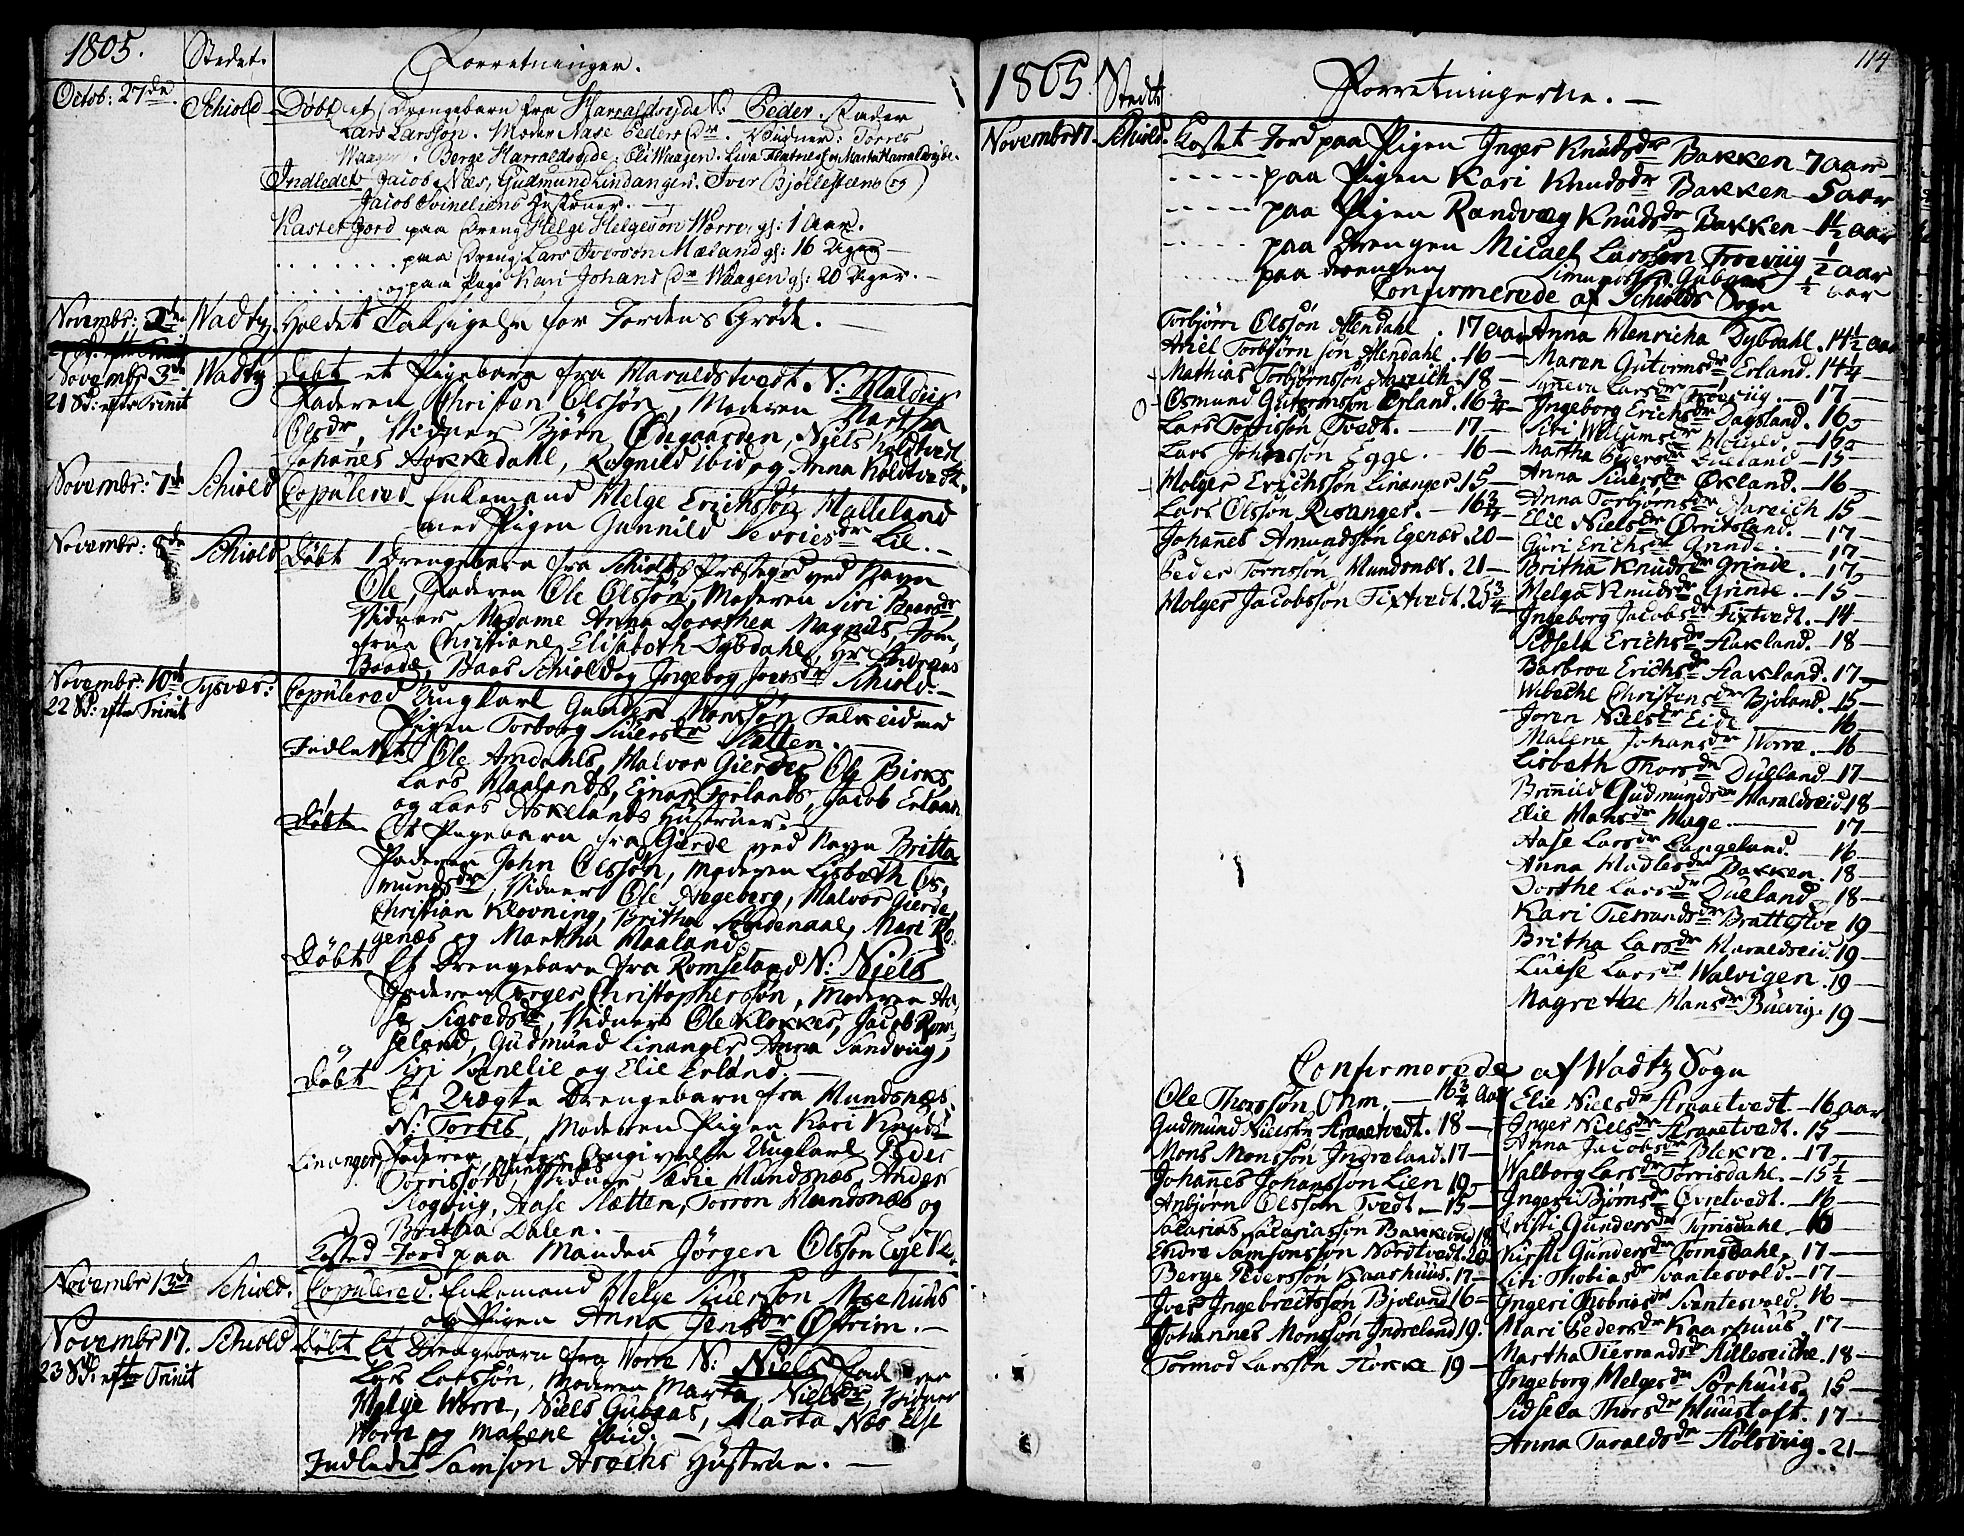 1805.
Stedet.
Forretninger.
Octob: 27de.
Schiold
Døbt et Drengebarn fra Harraldseide N: Peder. Fader
Lars Larsson. Moder Aase Peders Dr. Vidner: Torres
Waagen. Berge Harraldseide, Eli Waagen. Liva Marta Harraldseide.
Indledet Jacob Næs, Gudmund Lindanger. Iver Bjøllesteens og
Jacob Svineliens Hustruer.
Kastet Jord paa Dreng Helge Helgeson Worre, gl: 1 Aar.
paa Dreng Lars Iverson Mæland gl: 16 Uger
og paa Pige Kari Johans Dr Waagen gl: 20 Uger.
Novembr: 2den
Wadtz.
Holdet Taksigelse for Jordens Grøde.
Novembr 3de
21 Sd: efter Trinit
Wadtz
Døbt et Pigebarn fra Haraldstvedt. N: Maldus
Faderen Christen Olssøn, Moderen Martha
Olsdr, Vidner Bjørn Ødegaarden, Niels Holdtvedt,
Johanes Aokkedahl, Rognild ibid og Anna Holdtvedt.
Novembr: 7de
Schiold
Copulered Enkemand Helge Erichssøn Malleland
med Pigen Gunnild Sevriesdr Lie.
Novembr: 8de
Schiold
Døbt 1 Drengebarn fra Schiolds Præstegrd ved Navn
Ole, Faderen Ole Olssøn, Moderen Siri Baarsdr
Vidner Madame Anna Dorothea Magnus, Jom-
frue Christiane Elisabeth Dybdahl, Hr Andreas
Baade, Baar Schiold og Ingebog Joensdr Schiold.
Novembr: 10de
22 Sd: efter Trinit
Tysvær:
Copulered Ungkarl Gunder Monssøn Falkeid med
Pigen Torborg Siuersdr Slatten.
Indledet Ole Amdahls, Halvor Gierdes, Ole Birks,
Lars Haalands, Einar Førlands, Jacob Erland
og Lars Askelands Hustruer.
Døbt Et Pigebarn fra Gierde ved Navn Britta
Faderen John Olssøn, Moderen Lisbeth Os-
mundsdr, Vidner Ole Aegeberg, Halvor Gierde,
Christian Klovning, Britha Søndenaae, Mari Ro-
genæs og Martha Haaland.
Døbt Et Drengebarn fra Romseland N: Niels
Faderen Torger Christopherssøn, Moderen Aa-
se Sigvedsdr, Vidner Ole Klokker, Jacob Rom-
seland, Gudmund Linanger, Anna Sandviig,
Siri Svinelie og Elie Erland.
Døbt Et Uægte Drengebarn fra Mundsnæs.
N: Torris, Moderen Pigen Kari Knuds dr
Linanger, Faderen efter Angivelse Ungkarl Peder
Torrissøn Mundsnæs, Vidner Sædie Mundsnæs, Anders
Skogviig, Aase Slætten, Torron Mundsnæs og
Britha Dalen.
Kasted Jord paa Manden Jörgen Olsson Eye
Novembr 13de
Schiold.
Copulered. Enkemand Helge Siuersson Moehuus
og Pigen Anna Jensdr Østrim.
Novembr 17.
23 Sd: efter Trinit
Schiold
Døbt Et Drengebarn fra Worre N: Niels, Faderen
Lars Larssøn, Moderen Marta Nielsdr, Vidner
Helge Worre, Niels Gubaas, Marta Næs, Else
Worre og Malene ibid.
Indledet Samson Hustrue.
114
1805
Stedet
Forretningerne.
Novembr 17.
Schiold.
Kastet Jord paa Pigen Inger Knudsdr Bakken 7 aar
paa Pigen Kari Knudsdr Bakken 5 aar
paa Pigen Randvæg Knudsdr Bakken 1½ aar
paa Drengen Micael Larsson Froeviig ½ aar
paa Drengen Gubaas ½ aar
Confirmerede af Schiolds Sogn
Torbjørn Olssøn Alendahl. 17 aar
Ariel Torbjørnsøn Alendahl. 16
Mathias Torbjørnssøn Aareich. 18
Osmund Gutormssøn Ørland. 16¾
Lars Torrissøn Tvedt. 17
Lars Johanssøn Egge. 16
Holger Erichssøn Linanger. 15
Lars Olssøn Risanger. 16¾
Johannes Amundssøn Egenæs. 20
Peder Torrissøn Mundsnæs. 21
Holger Jacobssøn Tixtvedt. 25¾
Anna Henricha Dybdahl. 14½ aar
Maren Gutormsdr Erland. 14¼
Syneva Larsdr Froeviig. 17
Ingeborg Erichsdr Dagsland. 16
Siri Willumsdr 15
Martha Pedersdr Dueland 15
Anna Siuersdr Ørland. 16
Anna Torbjørnsdr Aareich 15
Elie Nielsdr Ørritsland. 17
Guri Erichsdr Grinde. 17
Britha Knudsdr Grinde. 17
Helga Knudsdr Grinde. 15
Ingeborg Jacobsdr Tixtvedt. 14
Sidsela Erichsdr Aakland. 18
Barbroe Erichsdr Aakland. 17
Wibeche Christensdr Bjoland. 15
Joren Nielsdr Eide 16
Malene Johansdr Worre. 16
Lisbeth Thorsdr Dueland. 17
Bronild Gudmundsdr Haraldseid. 18
Elie Hansdr Hage. 17
Aase Larsdr Langeland. 16
Anna Madlesdr Bakken. 18
Dorthe Larsdr Dueland. 18
Kari Tierandsdr Brattestoe 19
Britha Larsdr Haraldseid. 19
Luise Larsdr Walvigen. 19
Magrethe Hansdr Buevig. 19
Confirmerede af Wadtz Sogn
Ole Thorssøn Ohm. 16¾ Aar
Gudmund Nielssøn Araaetvedt. 18
Mons Monssøn Indreland. 17
Johanes Johanssøn Lien 19
Anbjørn Olssøn Tvedt. 15
Salarias Salariassøn Bakkevold 18
Endre Samsonssøn Nordtvedt. 20
Berge Pederssøn Kaarhuus. 17
Iver Ingebreitssøn Bjoland 16
Johannes Monssøn Indreland 19.
Tormod Larssøn Aokke 19
Elie Nielsdr Araaetvedt. 16 aar
Inger Nielsdr Araaetvedt. 15
Anna Jacobsdr Blekre. 17
Walborg Larsdr Torrisdahl. 15½
Ingeri Bjørnsdr Qvietvedt. 16
Kristi Gundersdr Torrisdahl. 18
Kirsti Gundersdr Torrisdahl. 17
Liti Thobiasdr Svantesvold. 17
Ingeri Thobiasdr Svantesvold. 16
Mari Pedersdr Kaarhuus. 17
Martha Tierrandsdr Allereiche. 18
Ingeborg Helgesdr Sørhuus. 15
Sidsela Thorsdr Huustoft. 17
Anna Taraldsdr Stølsviig. 21